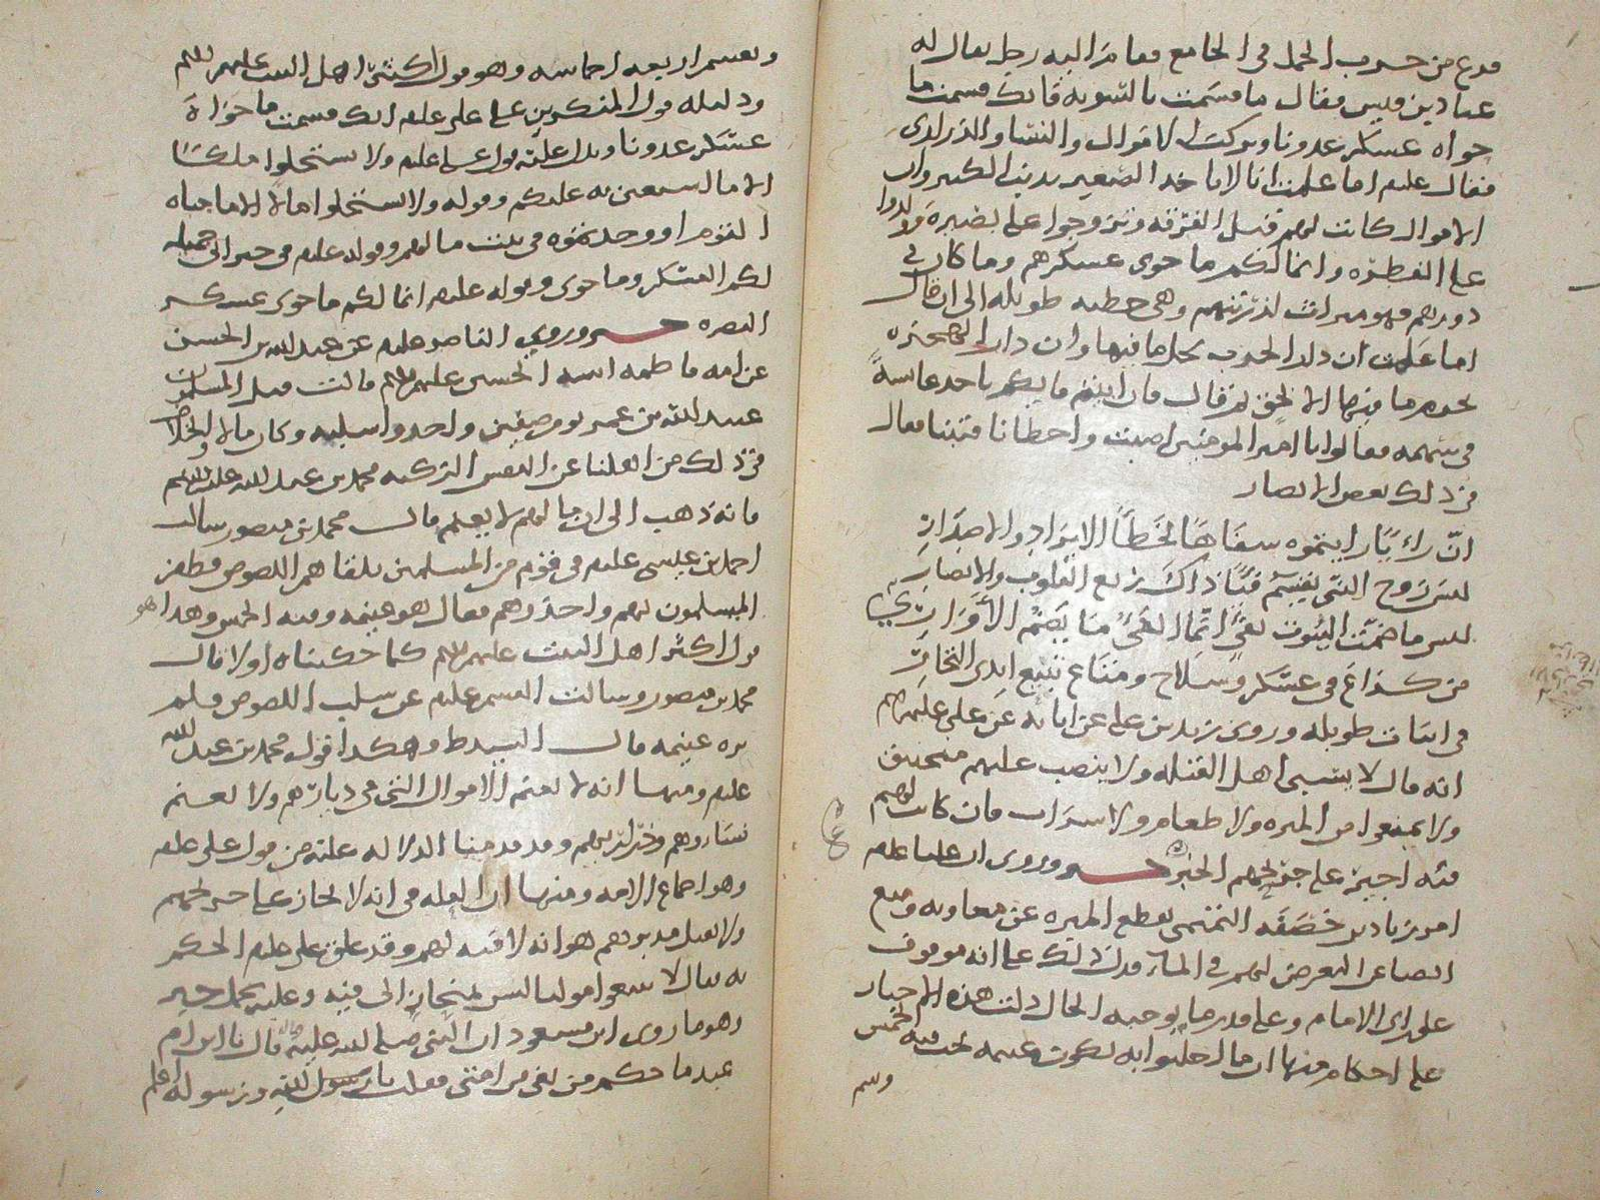 فرغ من حرب الجمل في الجامع فقام اليه رجل يقال له
عباد بن قيس فقال ما قسمت بالسويه فانك قسمت ما
حواه عسكر عدونا وتركت الاموال والنساء والذراري
فقال عليلم اما علمت انا لا ناخذ الصغير بذنب الكبير وان
الاموال كانت لهم قبل الفرقه وتزوجوا على بصيره وولدوا
على الفطره وانما لكم ما حوى عسكرهم وما كان في
دورهم فهو ميراث لذريتهم وهي خطبه طويله الى ان قال
اما علمت ان دار الحرب يحل ما فيها وان دار الهجره
يحرم ما فيها الا بحق ثم قال فان ابيتم فايكم ياخذ عائشة
في سهمه فقالوا يا امير المومنين اصبت واخطانا فتبنا فقال
في ذلك بعض الانصار
ان رايا رايتموه سفاها لخطا الايراد والاصدار
ليس زوج النبي يقسم فيئا ذاك زيغ القلوب والابصار
ليس ما ضمت البيوت بفيء انما الفيء ما يضم الاوار
من كراع في عسكر وسلاح ومتاع تبيع ايدي التجار
في ابيات طويله وروى زيد بن علي عن ابائه عن علي عليهم
انه قال لا يسبى اهل القبله ولا ينصب عليهم منجنيق
ولا يمنعوا من الميره ولا طعام ولا شراب فان كانت لهم
فئه اجيز على جريحهم الخبر خبر وروي ان عليا عليلم
امر زياد بن خصفه التيمي بقطع الميره عن معاويه ومنع
اصحابه التعرض لهم في الماء فدل ذلك على انه موقوف
على راي الامام وعلى قدر ما يوجبه الحال دلت هذه الاخبار
على احكام منها ان ما اجلبوا به يكون غنيمه تجب فيه الخمس
وسم
ويقسم اربعه اخماسه وهو قول اكثر اهل البيت عليهم السلام
ودليله قول المنكرين على علي عليلم انك قسمت ما حواه
عسكر عدونا ويدل عليه قول علي عليلم ولا تستحلوا ملكا
الا ما استعين به عليكم وقوله ولا تستحلوا مالا الا ما جباه
القوم او وجدتموه في بيت مالهم وقوله عليلم في خبر
لكم العسكر وما حوى وقوله عليلم انما لكم ما حوى عسكر
البصره خبر وروى الناصر عليلم عن عبد الله بن الحسن
عن امه فاطمه ابنه الحسين عليهم السلام قالت قتل المسلمون
عبيد الله بن عمر يوم صفين واخذوا سلبه وكان مالا
في ذلك من اهلنا عن النفس الزكيه محمد بن عبد الله عليهم السلام
فانه ذهب الى ان لا يغنم قال محمد بن منصور سالت
احمد بن عيسى عليلم في قوم من المسلمين يلقاهم اللصوص فظفر
المسلمون بهم واخذوهم فقال هو غنيمه وفيه الخمس وهذا هو
قول اكثر اهل البيت عليهم السلام كما حكيناه اولا قال
محمد بن منصور وسالت القسم عليلم عن سلب اللصوص فلم
يره غنيمه قال السيد ط وهكذا قول محمد بن عبد الله
عليلم ومنها انه لا يغنم الاموال التي في ديارهم ولا يغنم
نساوهم وذراريهم وقد قدمنا الدلاله عليه من قول علي عليلم
وهو اجماع الامه ومنها ان العله في انه لا يجاز على جريحهم
ولا يقتل مدبرهم هو انه لا فئه لهم وقد علق علي عليلم الحكم
به فقال لا تتبعوا موليا ليس بمنحاز الى فئه وعليه يحمل خبر
وهو ما روى ابن مسعود ان النبي صلى الله عليه واله قال يا ابن ام
عبد ما حكم من بغى من امتي فقلت يا رسول الله ورسوله اعلم